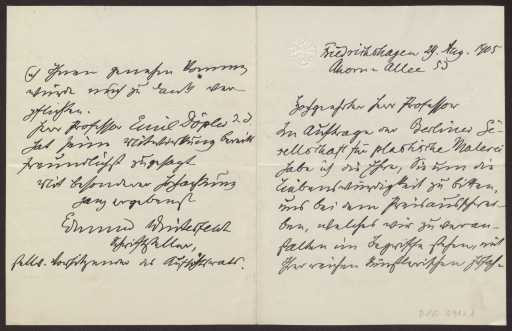 Friedrichshagen 29. Aug. 1905
Ahorn-Allee 53
Hochgeehrter Herr Professor
Im Auftrage der Berliner Ge-
sellschaft für plastische Malerei
habe ich die Ehre, Sie um die
Liebenswürdigkeit zu bitten,
uns bei dem Preisausschrei-
ben, welches wir zu veran-
stalten im Begriffe stehen, mit
Ihrer reichen künstlerischen
Ihnen genehm kommen,
würde mich zu Dank ver-
pflichten.
Herr Professor Emil Döpler d. J.
hat seine Mitwirkung bereits
freundlichst zugesagt
Mit besonderer Hochachtung
ganz ergebenst
Edmund Winterfeldt
Schriftsteller,
stellv. Vorsitzender des Aufsichtsrats.